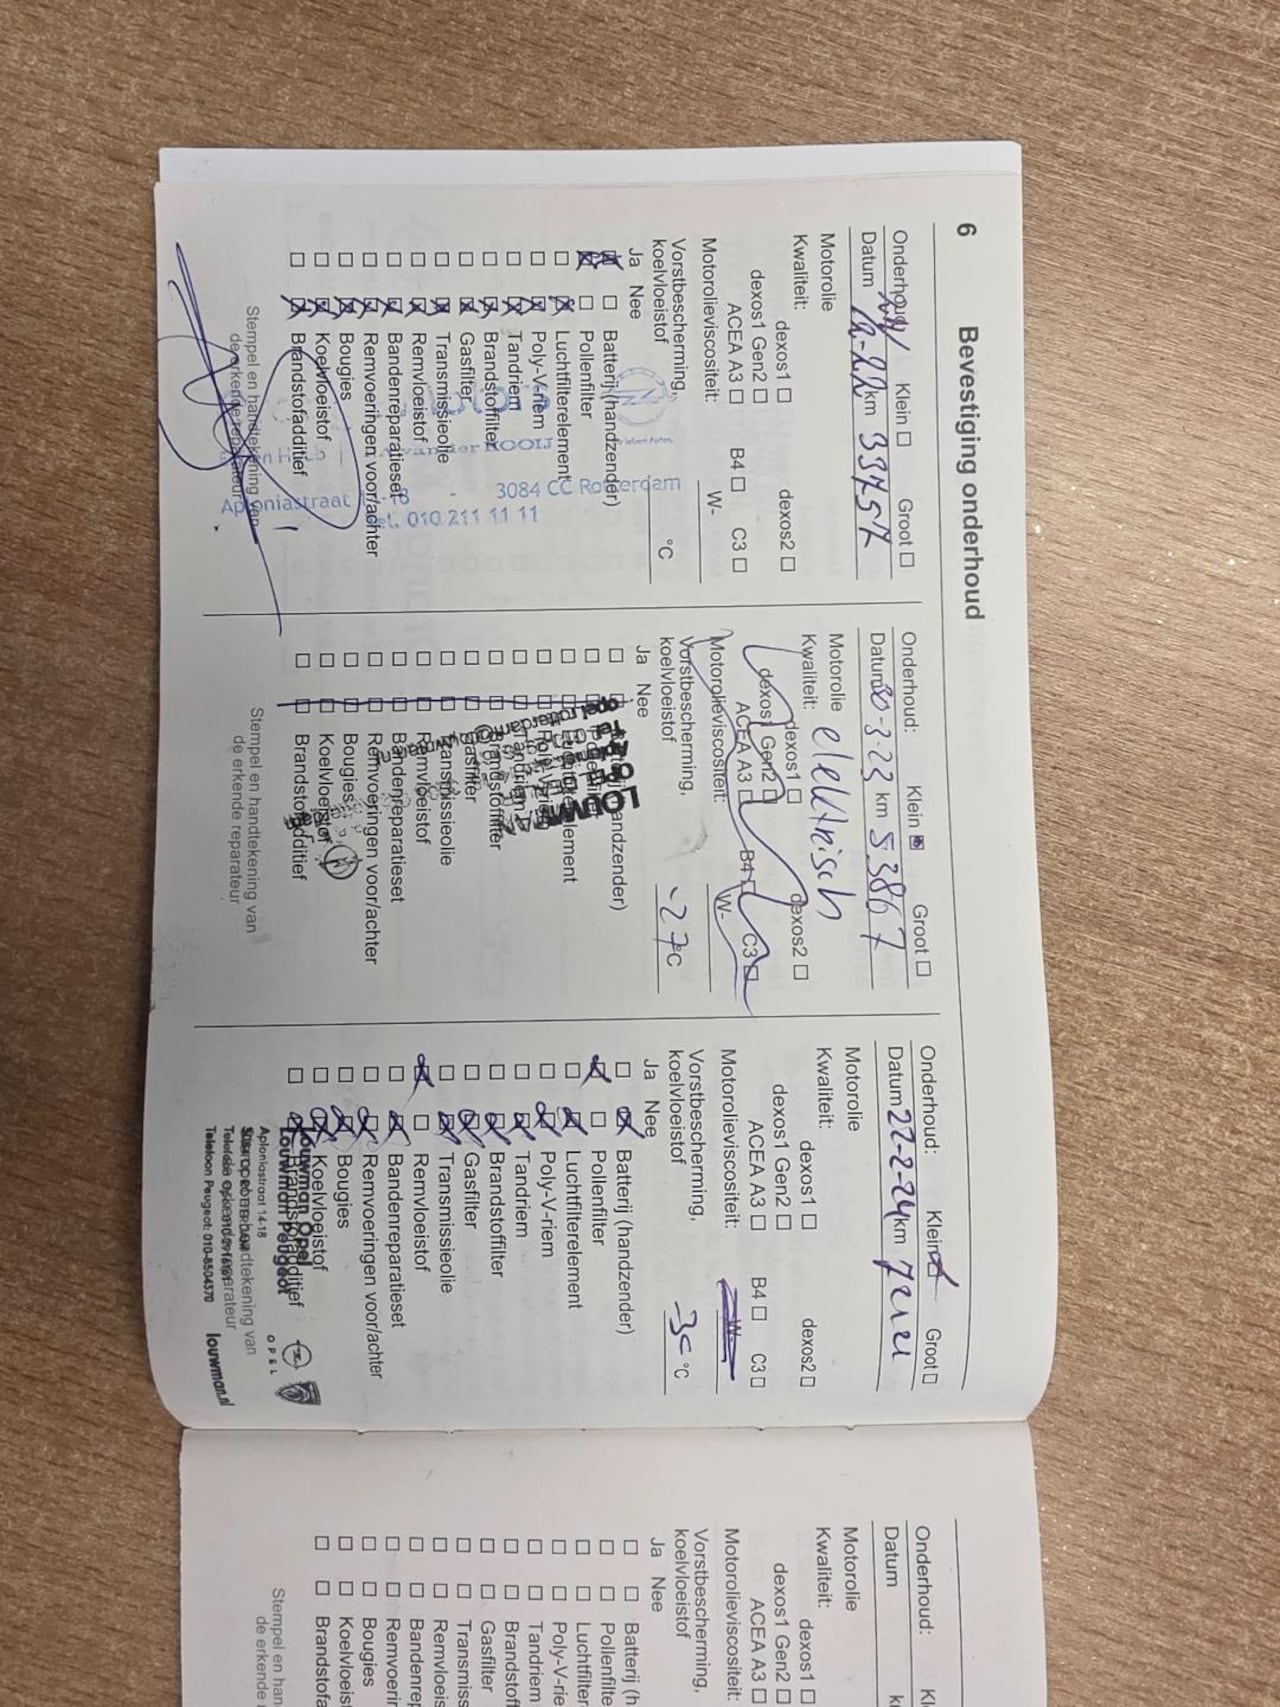 6 Bevestiging onderhoud
Klein Groot
Datum km 33757
Motorolie
Kwaliteit: dexos1 dexos2
dexos1 Gen2
ACEA A3 B4 C3
Motorolieviscositeit: W-
Vorstbescherming,
koelvloeistof °C
Ja Nee
Batterij (handzender)
Pollenfilter
Luchtfilterelement
Poly-V-riem
Tandriem
Brandstoffilter
Gasfilter
Transmissieolie
Remvloeistof
Bandenreparatieset
Remvoeringen voor/achter
Bougies
Koelvloeistof
Brandstofadditief
Stempel en handtekening van
de erkende reparateur
3084 CC Rotterdam
Aploniastraat
Tel. 010 211 11 11
Onderhoud: Klein Groot
Datum 30-3-23 km 53867
Motorolie elektrisch
Kwaliteit: dexos1 dexos2
dexos1 Gen2
ACEA A3 B4 C3
Motorolieviscositeit: W-
Vorstbescherming,
koelvloeistof -27°C
Ja Nee
Brandstoffilter
Gasfilter
Transmissieolie
Remvloeistof
Bandenreparatieset
Remvoeringen voor/achter
Bougies
Koelvloeistof
Brandstofadditief
Stempel en handtekening van
de erkende reparateur
Onderhoud: Klein Groot
Datum 22-2-24 km
Motorolie
Kwaliteit: dexos1 dexos2
dexos1 Gen2
ACEA A3 B4 C3
Motorolieviscositeit: W-
Vorstbescherming,
koelvloeistof °C
Ja Nee
Batterij (handzender)
Pollenfilter
Luchtfilterelement
Poly-V-riem
Tandriem
Brandstoffilter
Gasfilter
Transmissieolie
Remvloeistof
Bandenreparatieset
Remvoeringen voor/achter
Bougies
Koelvloeistof
Brandstofadditief
Louwman Opel
Louwman Peugeot
Aploniastraat 14-18
Telefoon Peugeot: 010-8504370
OPEL
louwman.nl
Onderhoud: Kl
Datum
Motorolie
Kwaliteit: dexos1
dexos1 Gen2
ACEA A3
Motorolieviscositeit:
Vorstbescherming,
koelvloeistof
Ja Nee
Batterij (h
Pollenfilte
Luchtfilter
Poly-V-rie
Tandriem
Brandstoff
Gasfilter
Transmiss
Remvloeis
Bandenrep
Remvoerin
Bougies
Koelvloeist
Brandstofa
Stempel en han
de erkende